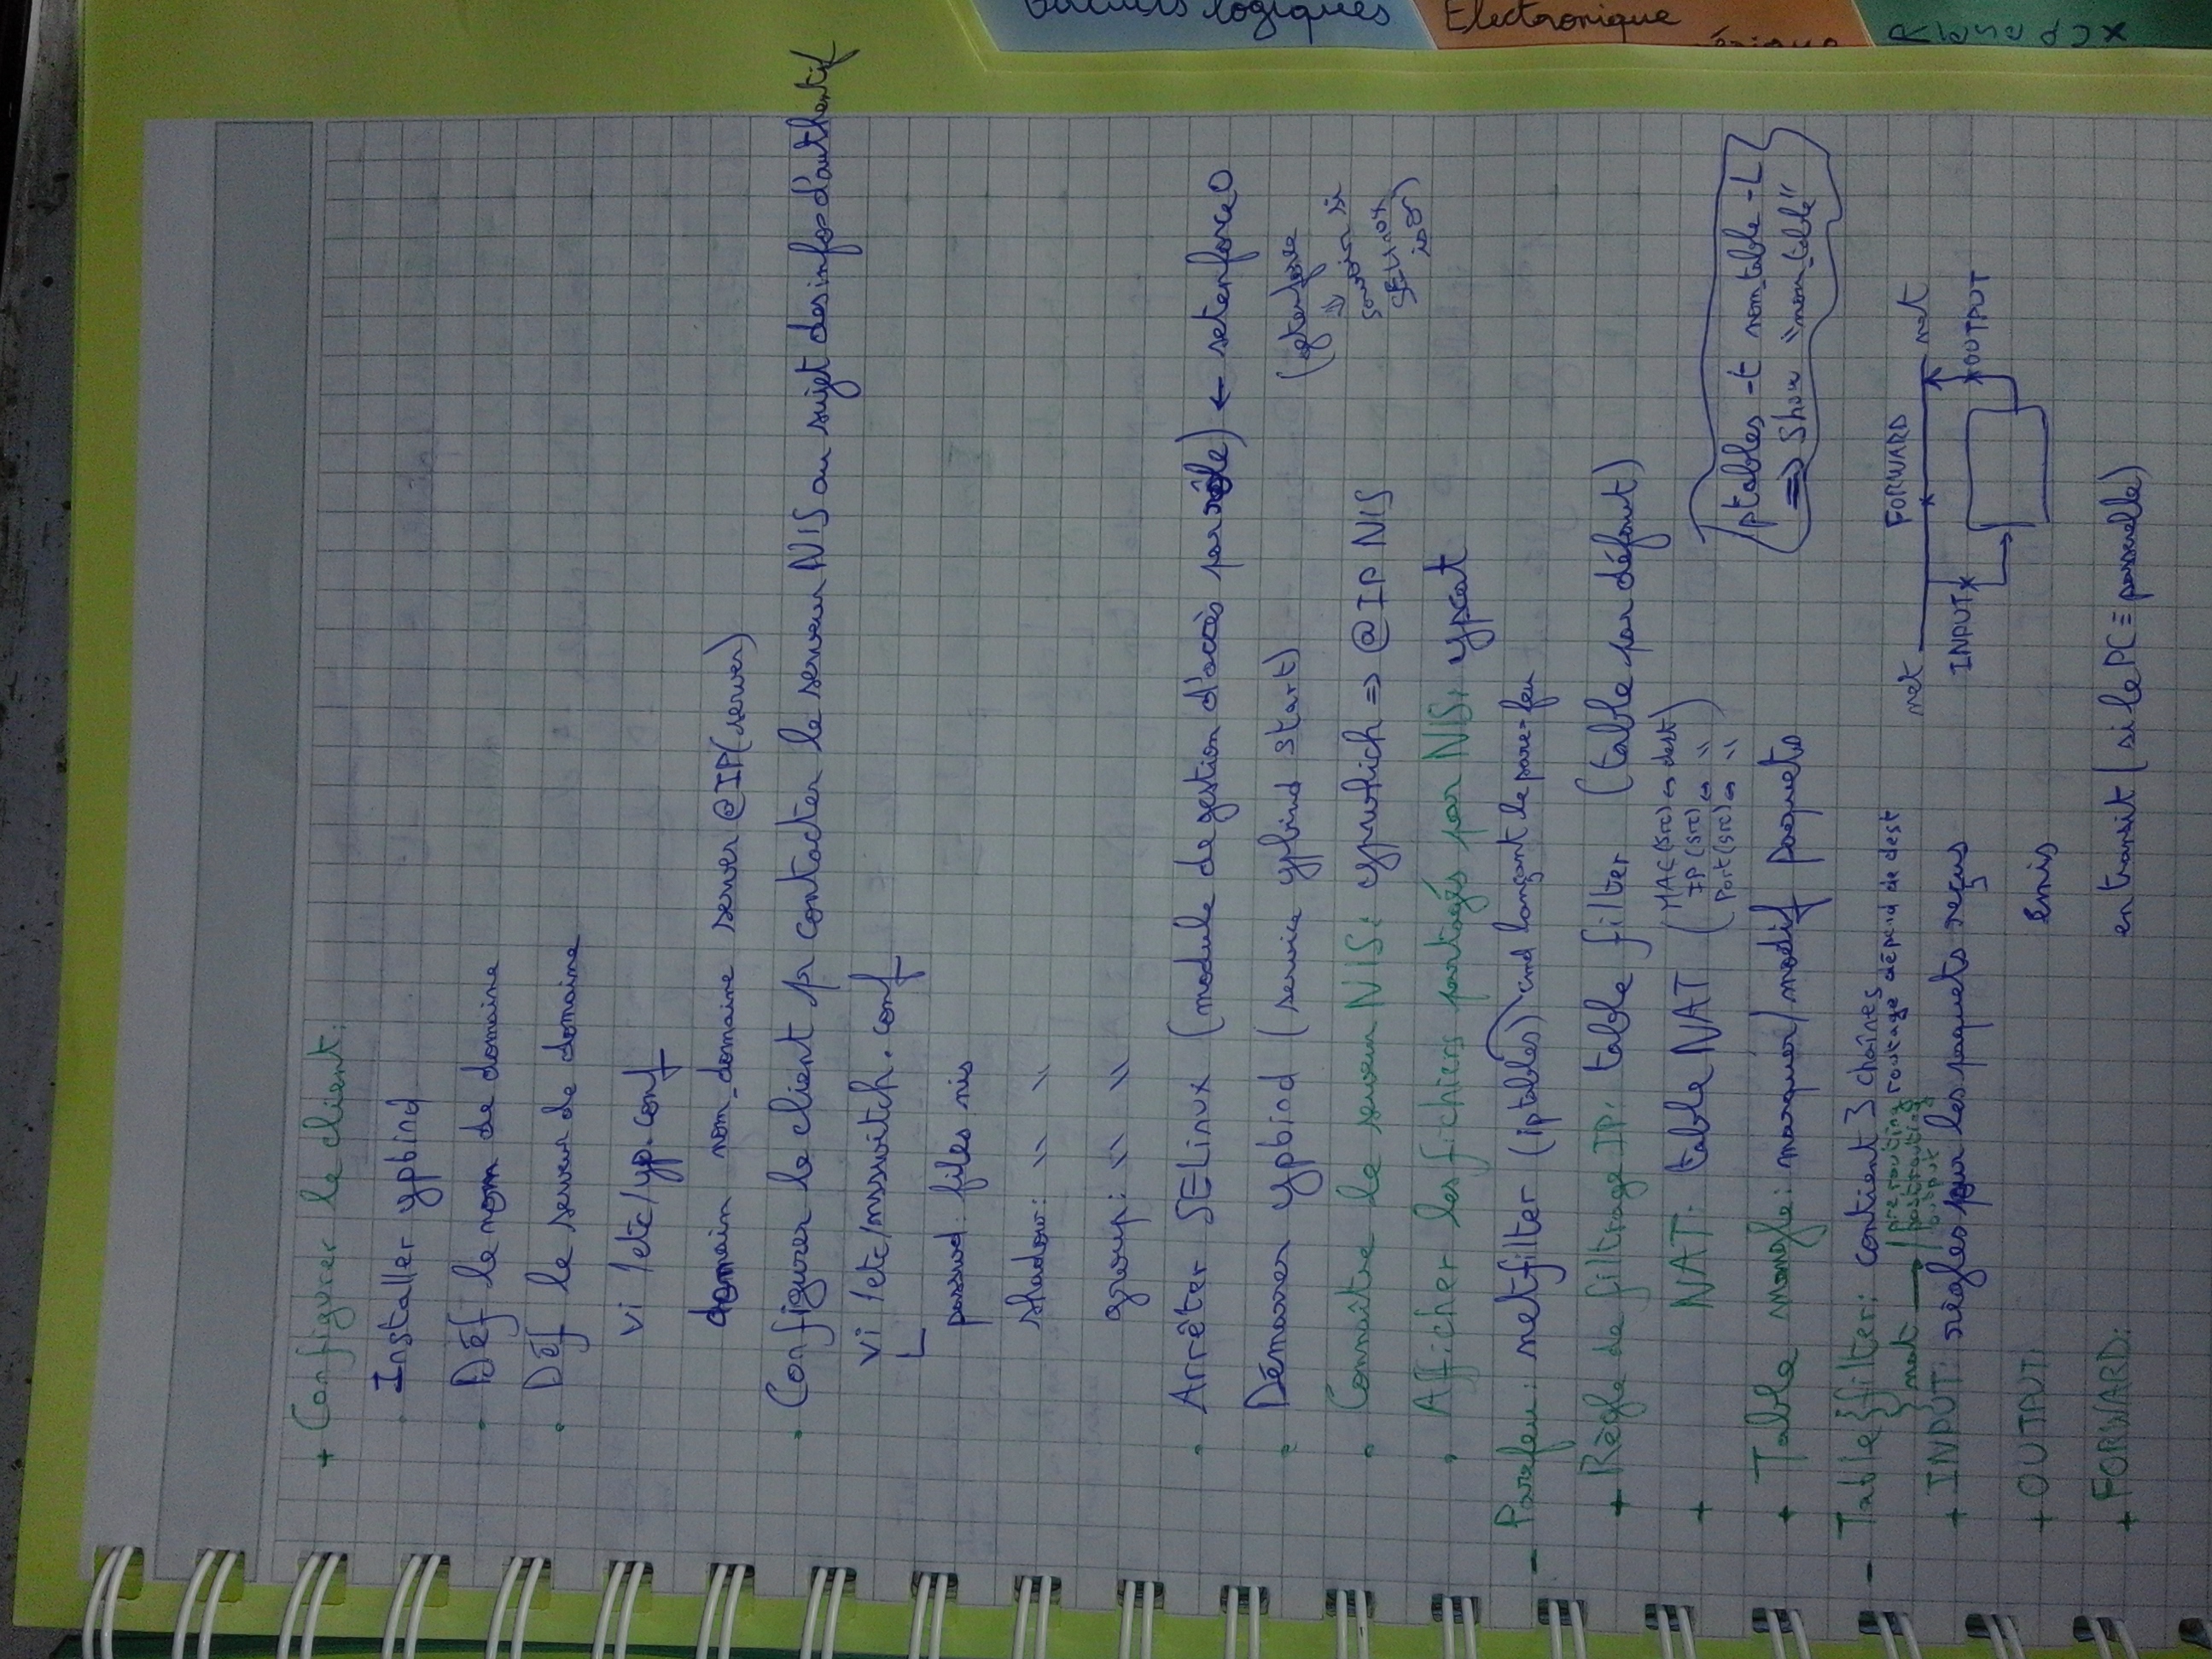 + Configurer le client:
. Installer ypbind
. Déf le nom de domaine
. Déf le serveur de domaine
vi /etc/yp.conf
domain nom_domaine server @IP(server)
. Configurer le client pr contacter le serveur NIS au sujet des infos d'authentif
vi /etc/nsswitch.conf
passwd: files nis
shadow: " "
group: " "
. Arrêter SELinux (module de gestion d'accès par rôle) ← setenforce 0
. Démarrer ypbind (service ypbind start)
(getenforce
⇓
savoir si
SELinux
is on)
. Connaître le serveur NIS: ypwhich => @IP NIS
. Afficher les fichiers partagés par NIS: ypcat
- Parefeu: netfilter (iptables) cmd lançant le pare-feu
+ Règle de filtrage IP: table filter (table par défaut)
+ NAT: table NAT (MAC(src) ↔ dest)
IP(src) ↔ "
Port(src) ↔ "
+ Table mangle: marquer/modif paquets
Iptables -t nom_table -L
=> Show "nom_table"
- Table } filter: contient 3 chaînes
} nat → prerouting routage dépend de dest
postrouting
output
+ INPUT: règles pour les paquets reçus
+ OUTPUT: émis
+ FORWARD: en transit (si le PC ≡ passerelle)
net FORWARD net
INPUT OUTPUT
logiques
Electronique
Réseaux